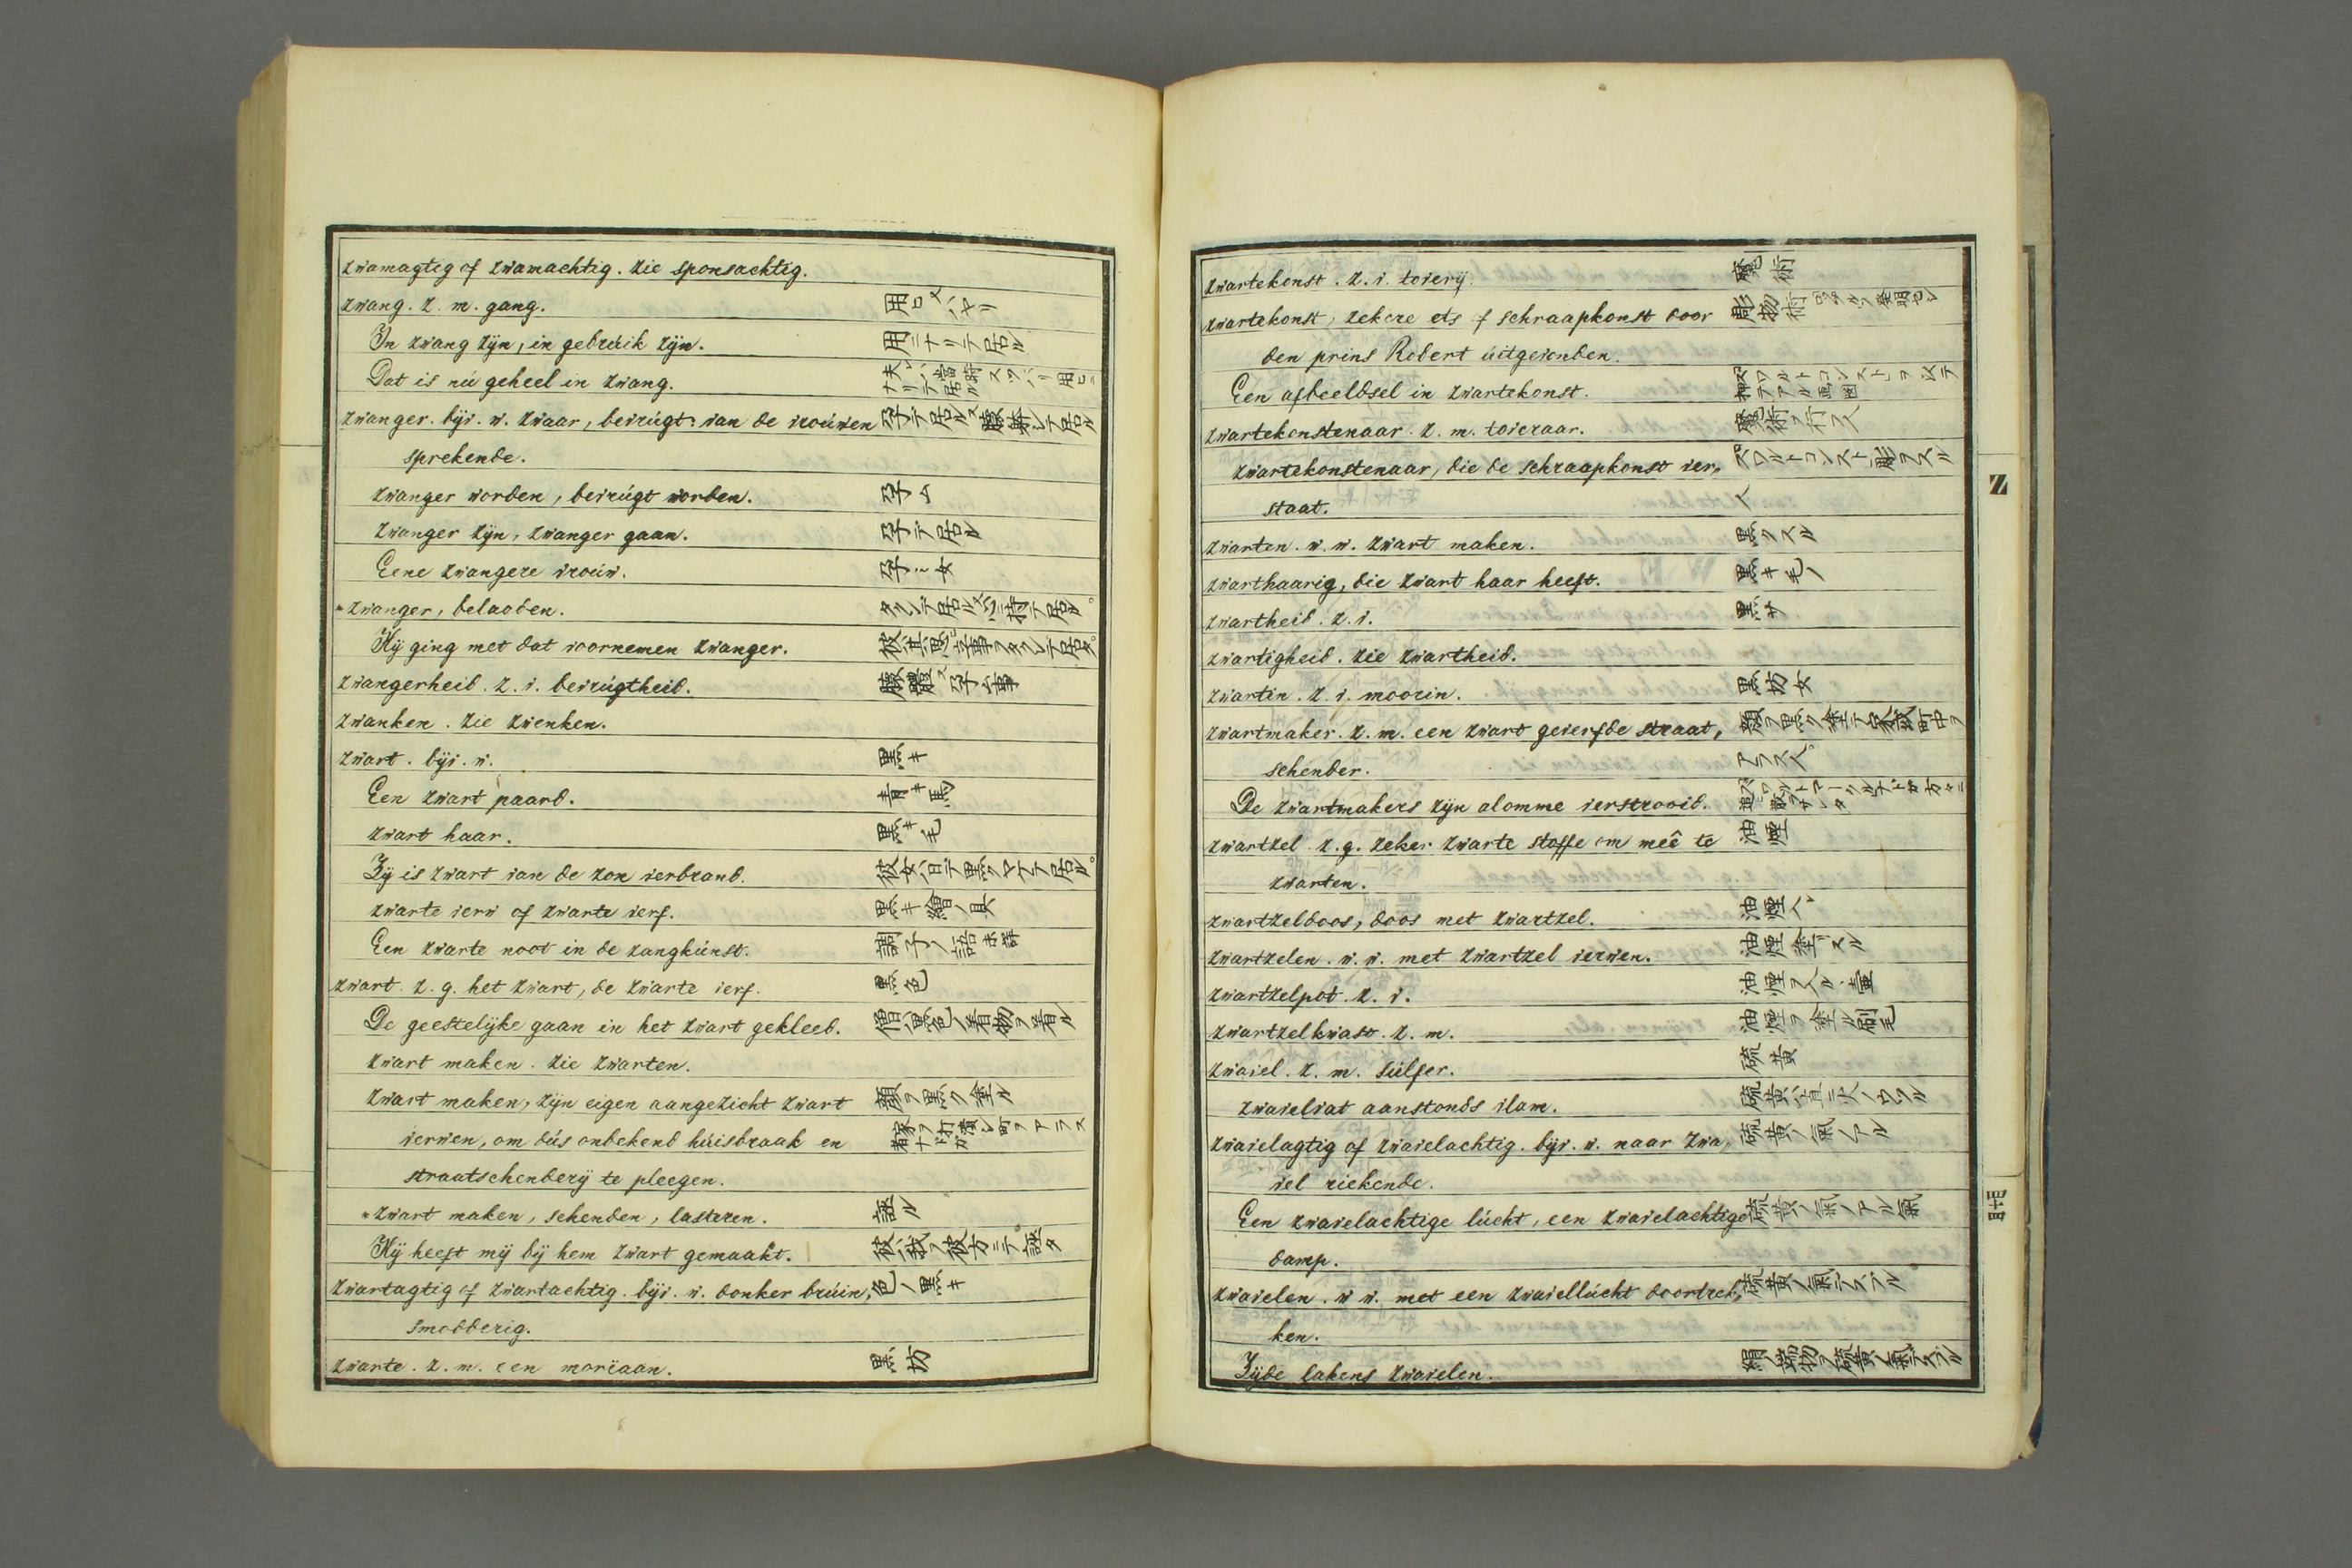 zwamagtig of zwamachtig. zie sponsachtig.
zwang. z. m. gang. 用ヒ
In zwang zijn, in gebrúik zijn. 用ニナリテ居ル
Dat is nú geheel in zwang.
zwanger. bijv. w. zwaar, bevrúgt van de vroúwen
sprekende.
zwanger worden, bevrúgt worden. 孕ム
zwanger zijn, zwanger gaan. 孕デ居ル
Eene zwangere vroúw. 孕ミ女
*zwanger, belaaden.
Hij ging met dat voornemen zwanger.
zwangerheid. z. v. bevrúgtheid.
zwanken. zie zwenken.
zwart. bijv. w. 黒キ
Een zwart paard. 青キ馬
zwart haar. 黒キ毛
Zij is zwart van de zon verbrand.
zwarte verw of zwarte verf. 黒キ繪ノ具
Een zwarte noot in de zangkúnst. 調子ノ語
zwart. z. g. het zwart, de zwarte verf. 黒色
De geestelijke gaan in het zwart gekleed. 僧ハ黒色ノ着物ヲ着ル
zwart maken. zie zwarten.
zwart maken, zijn eigen aangezicht zwart 顔ヲ黒ク塗ル
verwen, om dús onbekend húisbraak en
straatschenderij te pleegen.
*zwart maken, schenden, lasteren.
Hij heeft mij bij hem zwart gemaakt.
zwartagtig of zwartachtig. bijv. w. donker brúin, 色ノ黒キ
smodderig.
zwarte. z. m. een moriaan. 黒坊
zwartekonst. z. v. toverij. 魔術
zwartekonst, zekere ets of schraapkonst door
den prins Robert úitgevonden.
Een afbeeldsel in zwartekonst.
zwartekonstenaar. z. m. toveraar. 魔術ヲ行フ人
zwartekonstenaar, die de schraapkonst ver,
staat. 人
zwarten. w. w. zwart maken. 黒クスル
zwarthaarig, die zwart haar heeft. 黒キ毛ノ
zwartheid. z. v. 黒サ
zwartigheid. zie zwartheid.
zwartin. z. v. moorin. 黒坊女
zwartmaker. z. m. een zwart geverfde straat,
schender.
De zwartmakers zijn alomme verstrooid.
zwartzel. z. g. zeker zwarte stoffe om meê te 油煙
zwarten.
zwartzeldoos, doos met zwartzel.
zwartzelen. w. w. met zwartzel verwen.
zwartzelpot. z. v.
zwartzelkwast. z. m. 油煙ヲ塗ル刷毛
zwavel. z. m. súlfer. 硫黄
zwavelvat aanstonds vlam.
zwavelagtig of zwavelachtig. bijv. w. naar zwa, 硫黄ノ氣ノアル
vel riekende.
Een zwavelachtige lúcht, een zwavelachtige 硫黄ノ氣ノアル氣
damp.
zwavelen. w. w. met een zwavellúcht doortrek,
ken.
Zijde lakens zwavelen.
Z